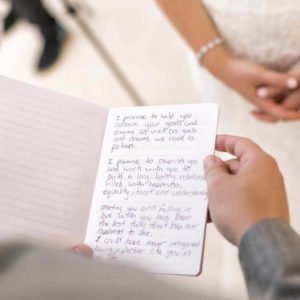 I promise to help you
achieve your goals and
dreams as well as goals
and dreams we have as
partners.
I promise to cherish you
and work with you to
build a long lasting relationship
filled with happiness,
equality, trust and understanding
Meeting you and falling in
love with you has been
the best thing that has ever
happened to me.
I could have never imagined
having a partner like you in